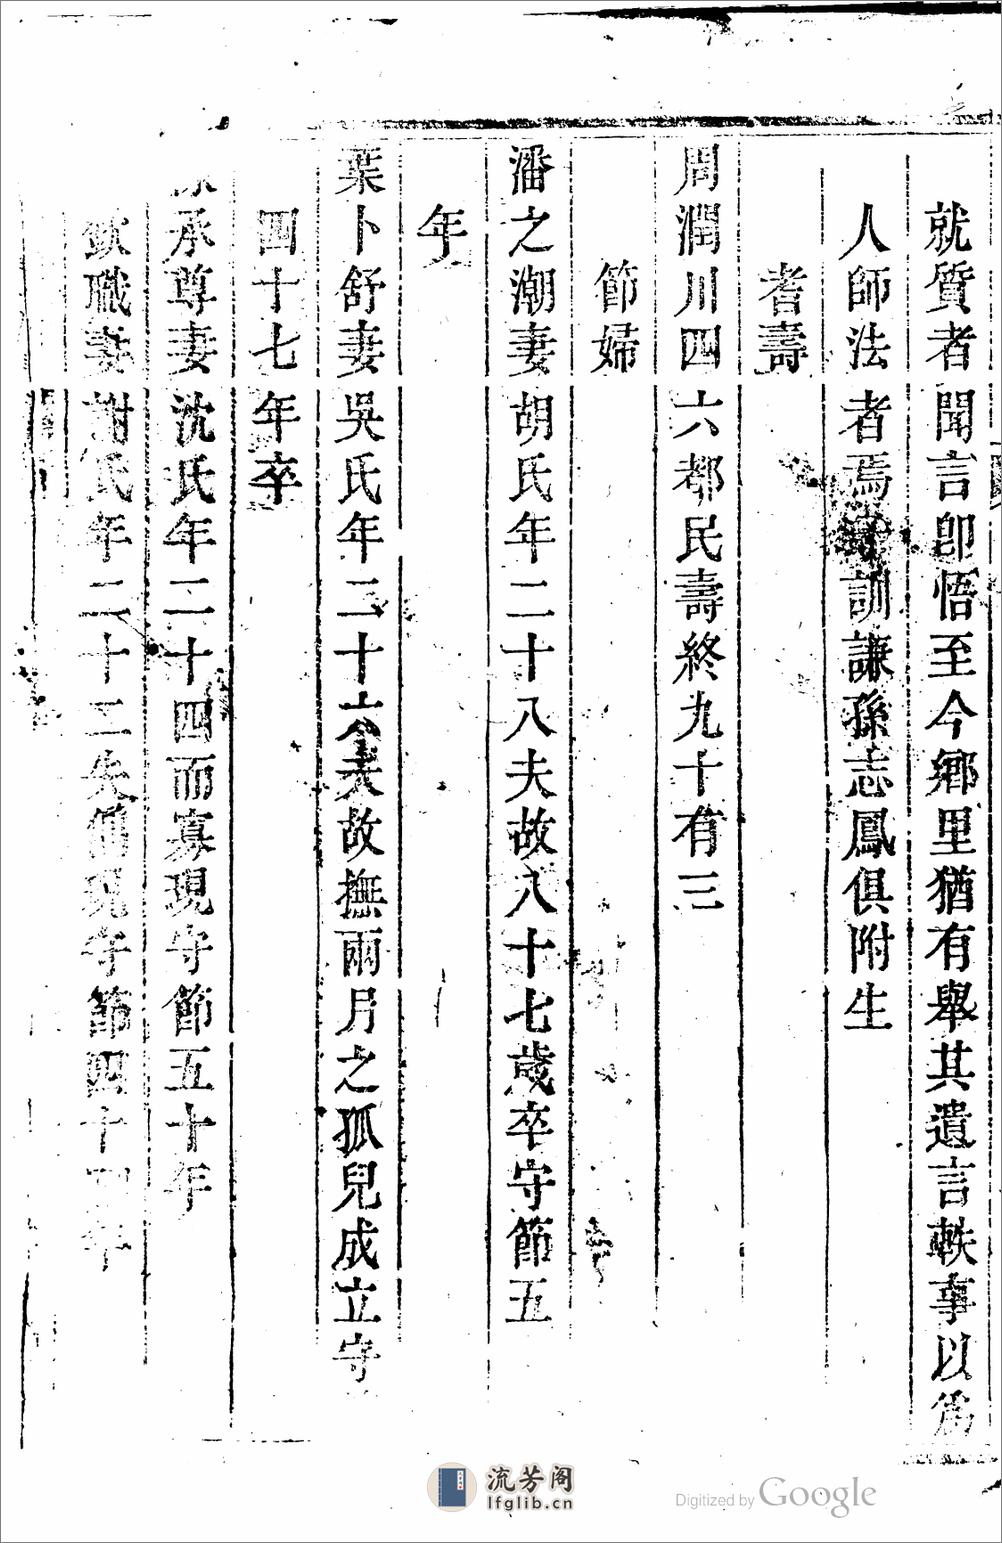 就質者聞言卽悟至今鄉里猶有舉其遺言軼事以爲
人師法者焉訓謙孫志鳳俱附生
耆壽
周潤川四六都民壽終九十有三
節婦
潘之潮妻胡氏年二十八夫故八十七歲卒守節五
年
葉卜舒妻吳氏年二十六夫故撫兩月之孤兒成立守
四十七年卒
承尊妻沈氏年二十四而寡現守節五十年
職妻謝氏年二十二失儷現守節四十年
流芳阁
lfglib.cn
Digitized by Google